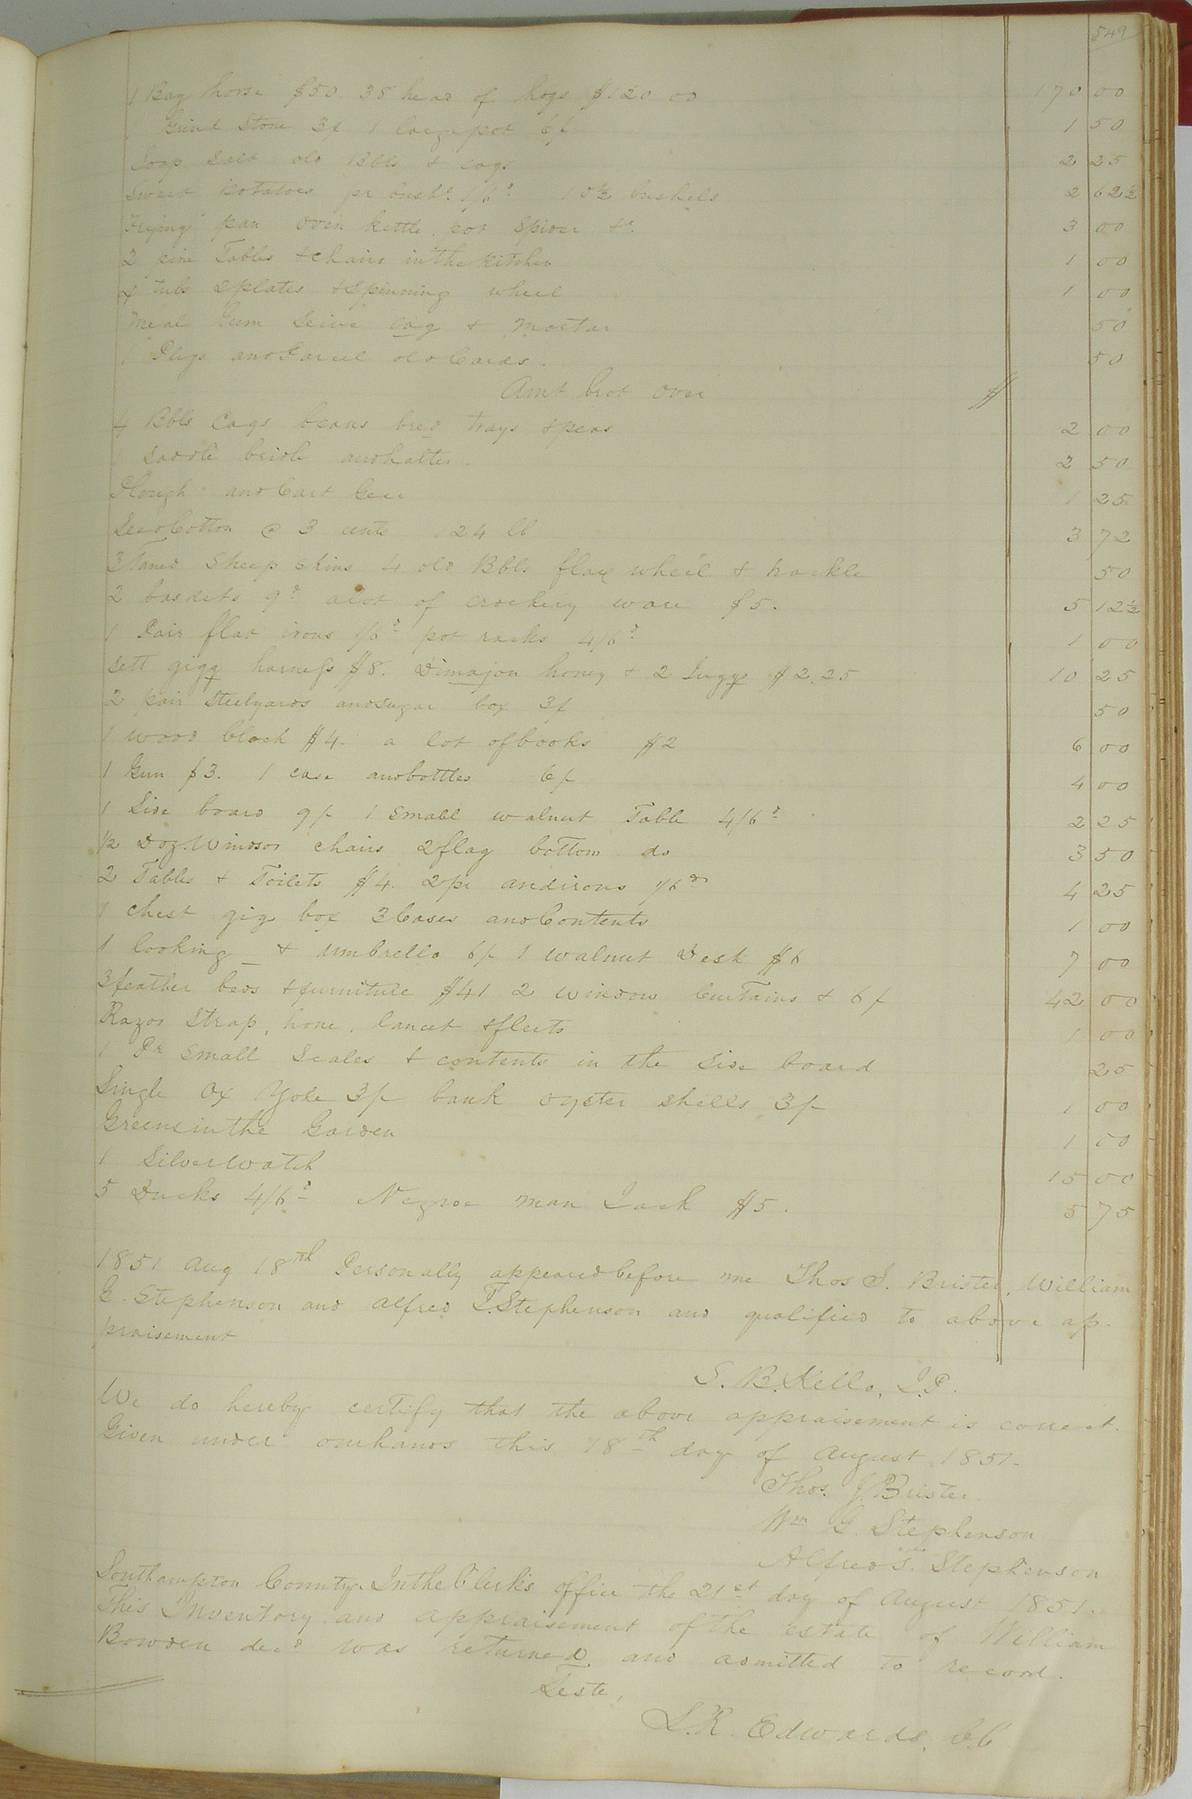 549
1 Bay horse $50. 38 head of hogs $120 00 170 00
1 Grind Stone 3/ 1 large pot 6/ 1 50
Soap Salt old Bbls & cags 2 25
Sweet Potatoes pr bushl 1/6d 10½ bushels 2 62½
Frying pan oven kettle pot Spider &c 3 00
2 pine Tables & chairs in the kitchen 1 00
4 tubs 2 plates & Spinning wheel 1 00
Meal Gum Seive cag & Mortar 50
1 and Parcel old Cards. 50
Amt brot over $
4 Bbls Cags beans bread trays & peas 2 00
1 Saddle bridle and halter. 2 50
Plough and Cart Gear 1 25
Seed Cotton @ 3 cents 124 lb 3 72
3 Taned Sheep Skins 4 old Bbls flax wheel & hackle 50
2 baskets 9d a lot of crockery ware $5. 5 12½
1 Pair flat irons 1/6d pot racks 4/6d 1 00
Sett gigg harness $8. Dimajon honey & 2 Juggs $2.25 10 25
2 pair Steelyards and sugar box 3/ 50
1 wood clock $4. a lot of books $2 6 00
1 Gun $3. 1 case and bottles 6/ 4 00
1 Side board 9/ 1 Small walnut Table 4/6d 2 25
½ Doz. Windsor chairs 2 flag bottom do 3 50
2 Tables & Toilets $4. 2 pr andirons 1/6d 4 25
1 chest gig box 3 Cases and Contents 1 00
1 looking _ & umbrella 6/ 1 walnut Desk $6 7 00
3 feather beds & furniture $41 2 window Curtains & 6/ 42 00
Razor Strap, hone, lancet & fleets 1 00
1 Pr Small Scales & contents in the Side board 25
Single Ox Yoke 3/ bank oyster shells 3/ 1 00
Greens in the Garden 1 00
1 Silver Watch 15 00
5 Ducks 4/6d Negroe man Jack $5. 5 75
1851 Aug 18th Personally appeared before me Thos J. Brister, William
G. Stephenson and Alfred T. Stephenson and qualified to above ap-
praisement
S. B. Kello, J.P.
We do hereby certify that the above appraisement is correct.
Given under our hands this 18th day of August 1851.
Thos. J Brister
Wm G. Stephenson
Alfred Stephenson
Southampton County. In the Clerk's office the 21st day of August 1851.
This Inventory and appraisement of the estate of William
Bowden decd was returned and admitted to record.
Teste,
L. R. Edwards, C.C